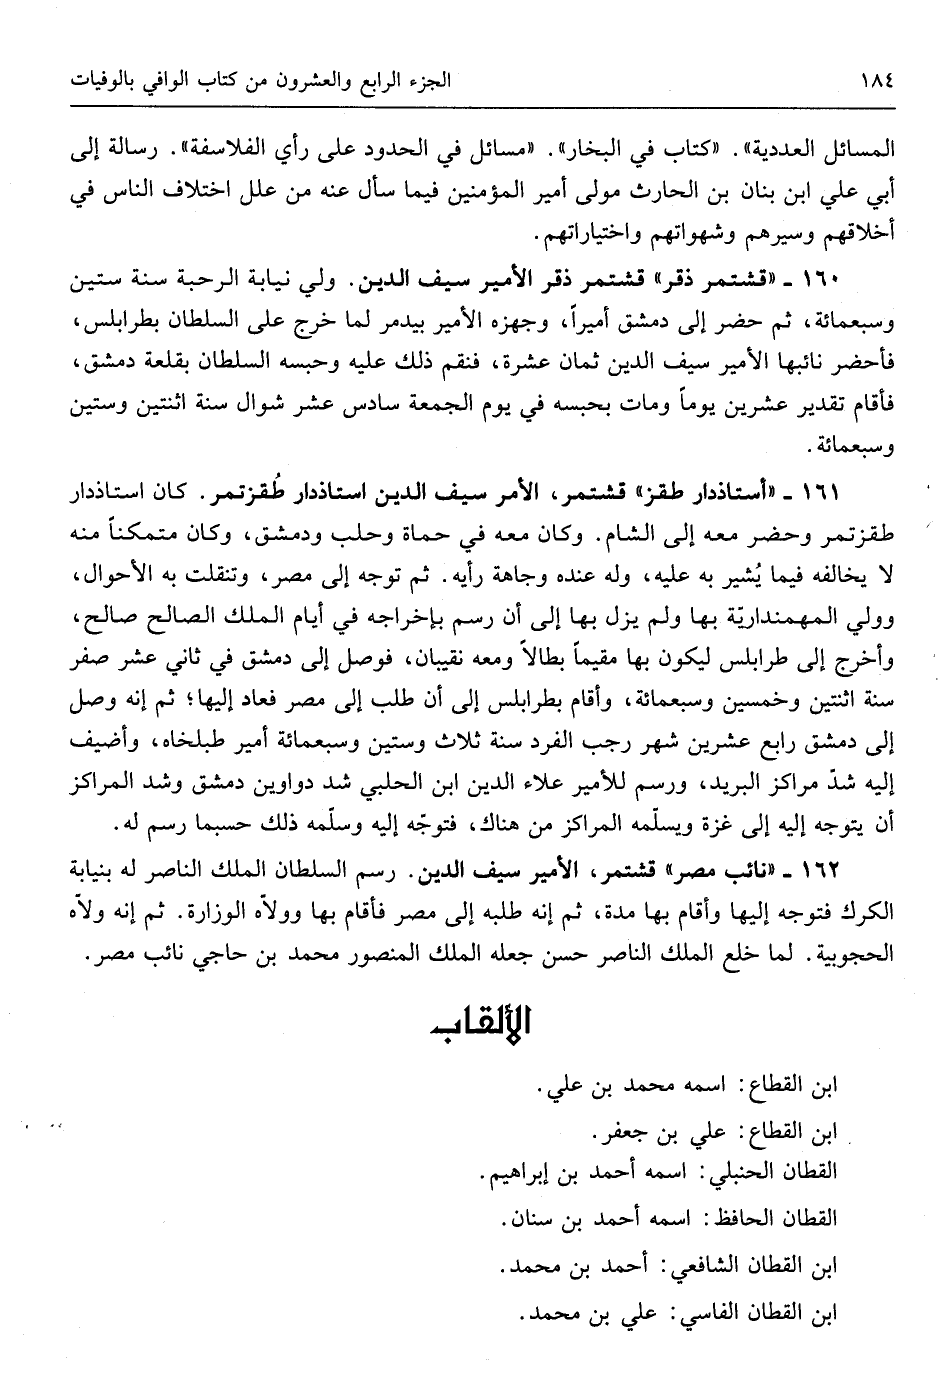 ١٨٤ الجزء الرابع والعشرون من كتاب الوافي بالوفيات
المسائل العددية». «كتاب في البخار». «مسائل في الحدود على رأي الفلاسفة». رسالة إلى
أبي علي ابن بنان بن الحارث مولى أمير المؤمنين فيما سأل عنه من علل اختلاف الناس في
أخلاقهم وسيرهم وشهواتهم واختياراتهم.
١٦٠ ـ «قشتمر ذقر» قشتمر ذقر الأمير سيف الدين. ولي نيابة الرحبة سنة ستين
وسبعمائة، ثم حضر إلى دمشق أميراً، وجهزه الأمير بيدمر لما خرج على السلطان بطرابلس،
فأحضر نائبها الأمير سيف الدين ثمان عشرة، فنقم ذلك عليه وحبسه السلطان بقلعة دمشق،
فأقام تقدير عشرين يوماً ومات بحبسه في يوم الجمعة سادس عشر شوال سنة اثنتين وستين
وسبعمائة.
١٦١ ـ «أستاذدار طقز» قشتمر، الأمر سيف الدين استاذدار طُقزتمر. كان استاذدار
طقزتمر وحضر معه إلى الشام. وكان معه في حماة وحلب ودمشق، وكان متمكناً منه
لا يخالفه فيما يُشير به عليه، وله عنده وجاهة رأيه. ثم توجه إلى مصر، وتنقلت به الأحوال،
وولي المهمنداريّة بها ولم يزل بها إلى أن رسم بإخراجه في أيام الملك الصالح صالح،
وأخرج إلى طرابلس ليكون بها مقيماً بطالاً ومعه نقيبان، فوصل إلى دمشق في ثاني عشر صفر
سنة اثنتين وخمسين وسبعمائة، وأقام بطرابلس إلى أن طلب إلى مصر فعاد إليها؛ ثم إنه وصل
إلى دمشق رابع عشرين شهر رجب الفرد سنة ثلاث وستين وسبعمائة أمير طبلخاه، وأضيف
إليه شدّ مراكز البريد، ورسم للأمير علاء الدين ابن الحلبي شد دواوين دمشق وشد المراكز
أن يتوجه إليه إلى غزة ويسلّمه المراكز من هناك، فتوجّه إليه وسلّمه ذلك حسبما رسم له.
١٦٢ ـ «نائب مصر» قشتمر، الأمير سيف الدين. رسم السلطان الملك الناصر له بنيابة
الكرك فتوجه إليها وأقام بها مدة، ثم إنه طلبه إلى مصر فأقام بها وولاّه الوزارة. ثم إنه ولاّه
الحجوبية. لما خلع الملك الناصر حسن جعله الملك المنصور محمد بن حاجي نائب مصر.
الألقاب
ابن القطاع: اسمه محمد بن علي.
ابن القطاع: علي بن جعفر.
القطان الحنبلي: اسمه أحمد بن إبراهيم.
القطان الحافظ: اسمه أحمد بن سنان.
ابن القطان الشافعي: أحمد بن محمد.
ابن القطان الفاسي: علي بن محمد.